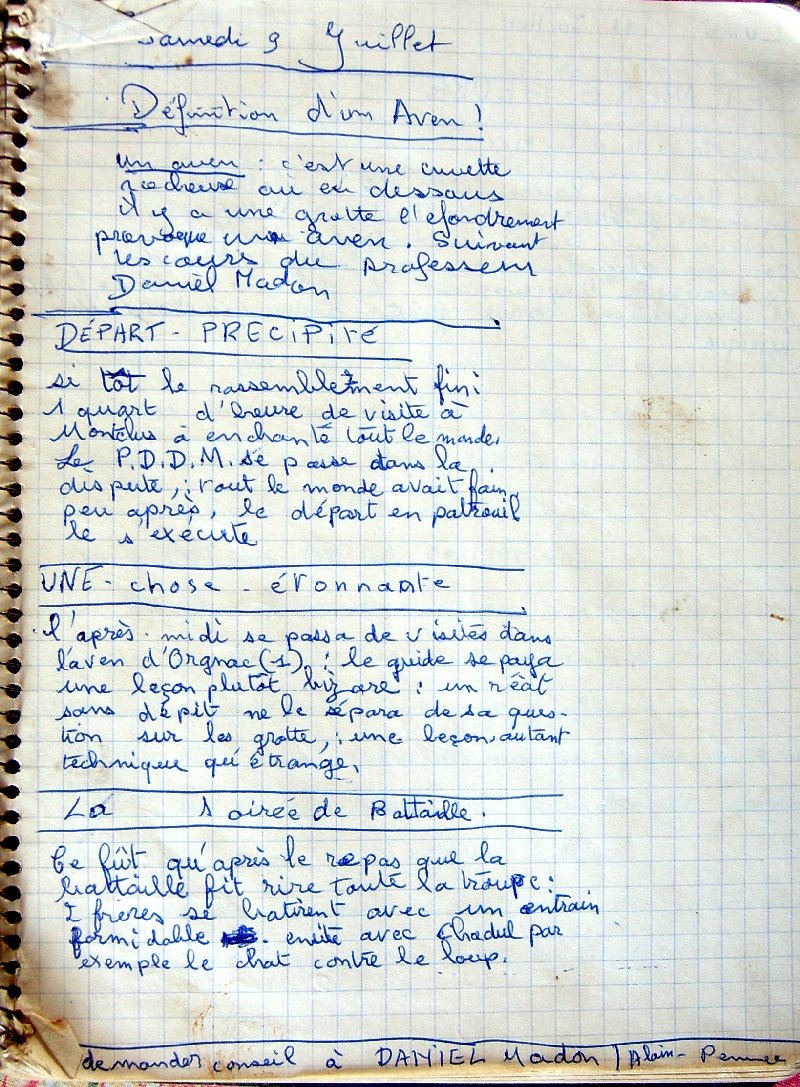 Samedi 9 Juillet
Définition d'un Aven !
un aven : c'est une cuvette
rocheuse où en dessous
il y a une grotte l'efondrement
provoque un aven. Suivant
les cours du professeur
Daniel Madon
DÉPART - PRECIPITÉ
si tôt le rassemblement fini
1 quart d'heure de visite à
Montclus à enchanté tout le monde.
Le P.D.D.M. se passe dans la
dispute, : tout le monde avait faim
peu après, le départ en patrouil
le s'exécute
UNE - chose - étonnante
l'après-midi se passa de visites dans
l'aven d'Orgnac (1). : le guide se paya
une leçon plutôt bizare : un
sans dépit ne le sépara de sa ques-
tion sur les grotte, : une leçon autant
technique qu'étrange.
La soirée de Battaille.
Ce fût qu'après le repas que la
battaille fit rire toute la troupe :
2 frères se batirent avec un entrain
formidable . ensite avec Chadul par
exemple le chat contre le loup.
demander conseil à DANIEL Madon / Alain -